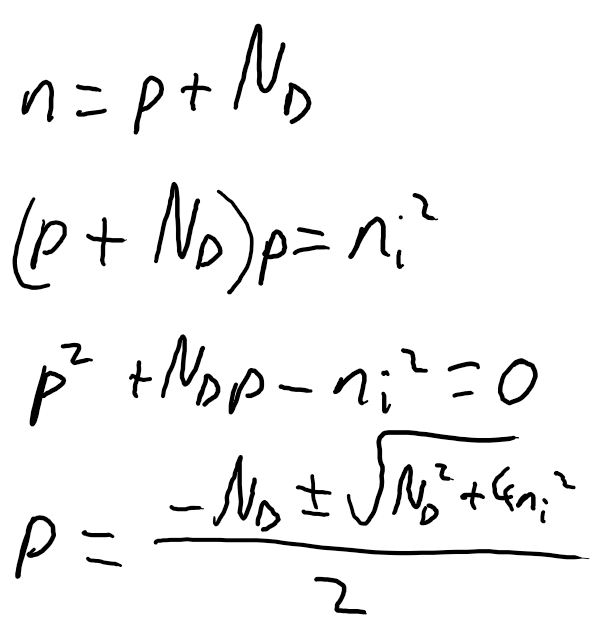 n = p + N_D
(p + N_D)p = n_i^2
p^2 + N_D p - n_i^2 = 0
p = \frac{-N_D ± \sqrt{N_D^2 + 4n_i^2}}{2}